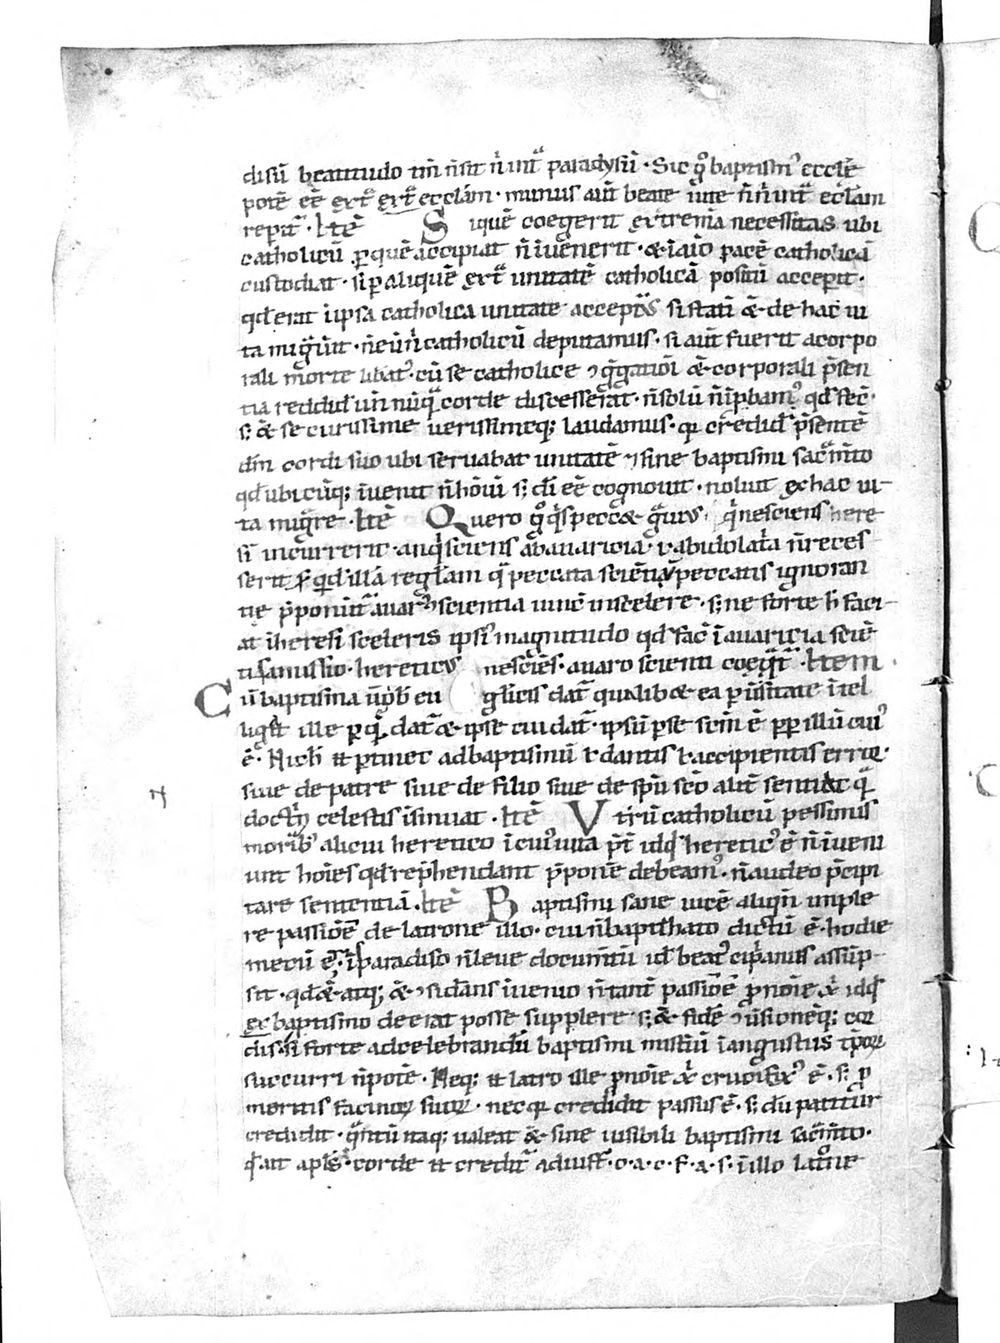 disū beatitudo tm̄ n̄ sit n̄ intᵃ paradysū · Sic gͦ baptism᾽ ecclē
potē eē extᵃ extᵃ ecclām · munus aūt beate uite n̄ n̄ intᵃ eccl̄am
reperit᾽ · Itē Siquē coegerit extrema necessitas ubi
catholicū p quē accipiat n̄ inuenerit · & i aīo pacē catholicā
custodiat · si p aliquē extᵃ unitatē catholicā positū acceperit ·
qd̄ erat i ipsa catholica unitate accepturus si statī & de hac ui
ta migrauit · n̄ eū n̄ catholicū deputamus · si aūt fuerit a corpo
rali morte libat᾽ · cū se catholice ⁊ congregatiōi & corporali p̄sen
tia reddid' un̄ nūqᵃ corde discesserat · n̄ solū n̄ īprobam᾽ qd̄ fec̄ ·
s; & securissime uerissimeq; laudamus · quia credid' p̄sentē
dm̄ cordi suo ubi seruabat unitatē ⁊ sine baptismi sacᵃmto
qd̄ ubicūq; inuenit n̄ hoīuī s; dī eē cognouit · noluit ex hac ui-
ta migrare · Itē Quero gͦ qis peccet grauius · qi nesciens here
sī incurrerit · an qi sciens ab auaricia · ł ab idolatria n̄ reces
serit sc̄d'm illā regulam qᵃ peccata scientiū peccatis ignoran
tie p̄ponūt᾽ auar᾽ cū scientia uincit in scelere · s; ne forte h̄ faci-
at i heresi sceleris ipsi᾽ magnitudo qd̄ fac̄ i auaricia sciē
tis amissio · hereticus nesciēs · auaro scienti coequet᾽ · Item ·
Cū baptisma ūbis eu gl̄icis dat᾽ qualib& ea puersitate itel
ligat ille p quē dat᾽ & ipse cui dat᾽ · ipsū p se scm̄ ē ppt illū cui᾽
ē · Nichil ei ptinet ad baptismū ł dantis ł accipientis error ·
siue de patre siue de filio siue de spū sc̄o alit̄ sentiat qᵃ
doctrina celestis isinuat · Itē Vtrū catholicū pessimis
morib᾽ alicui heretico i cui᾽ uita pt̄ idqd' heretic᾽ ē n̄ inueni
unt hoīes qd̄ rep̄hendant p̄ponē debeam᾽ · n̄ audeo p̄cipi
tare sententiā · Itē Baptismi sane uicē aliqn̄ imple
re passionē de latrone illo · cui n̄ baptizato dictū ē · hodie
mecū eris i paradiso n̄ leue documtū id̄ beat᾽ cip̄anus assūp-
sit · qd̄ & atq; & ⁊siderans inuenio n̄ tantū passionē p noīe xp̄i idqd'
ex baptismo deerat posse supplere · s; & fidē ⁊uersionēq; cor
dis · si forte ad celebrandū baptismi mistiū i angustiis tp̄oꝝ
succurri n̄ potē · Neq; ei latro ille p noīe xp̄i crucifix᾽ ē · s; p
meritis facinoꝝ suoꝝ · nec quia credidit passus ē · s; dū patitur
credidit · qᵃntū itaq; ualeat & sine uisibili baptismi sacᵃmto ·
qd̄ ait apl's · corde ei credit᾽ ad iust · o · a · c · f · a · s · i illo latrone